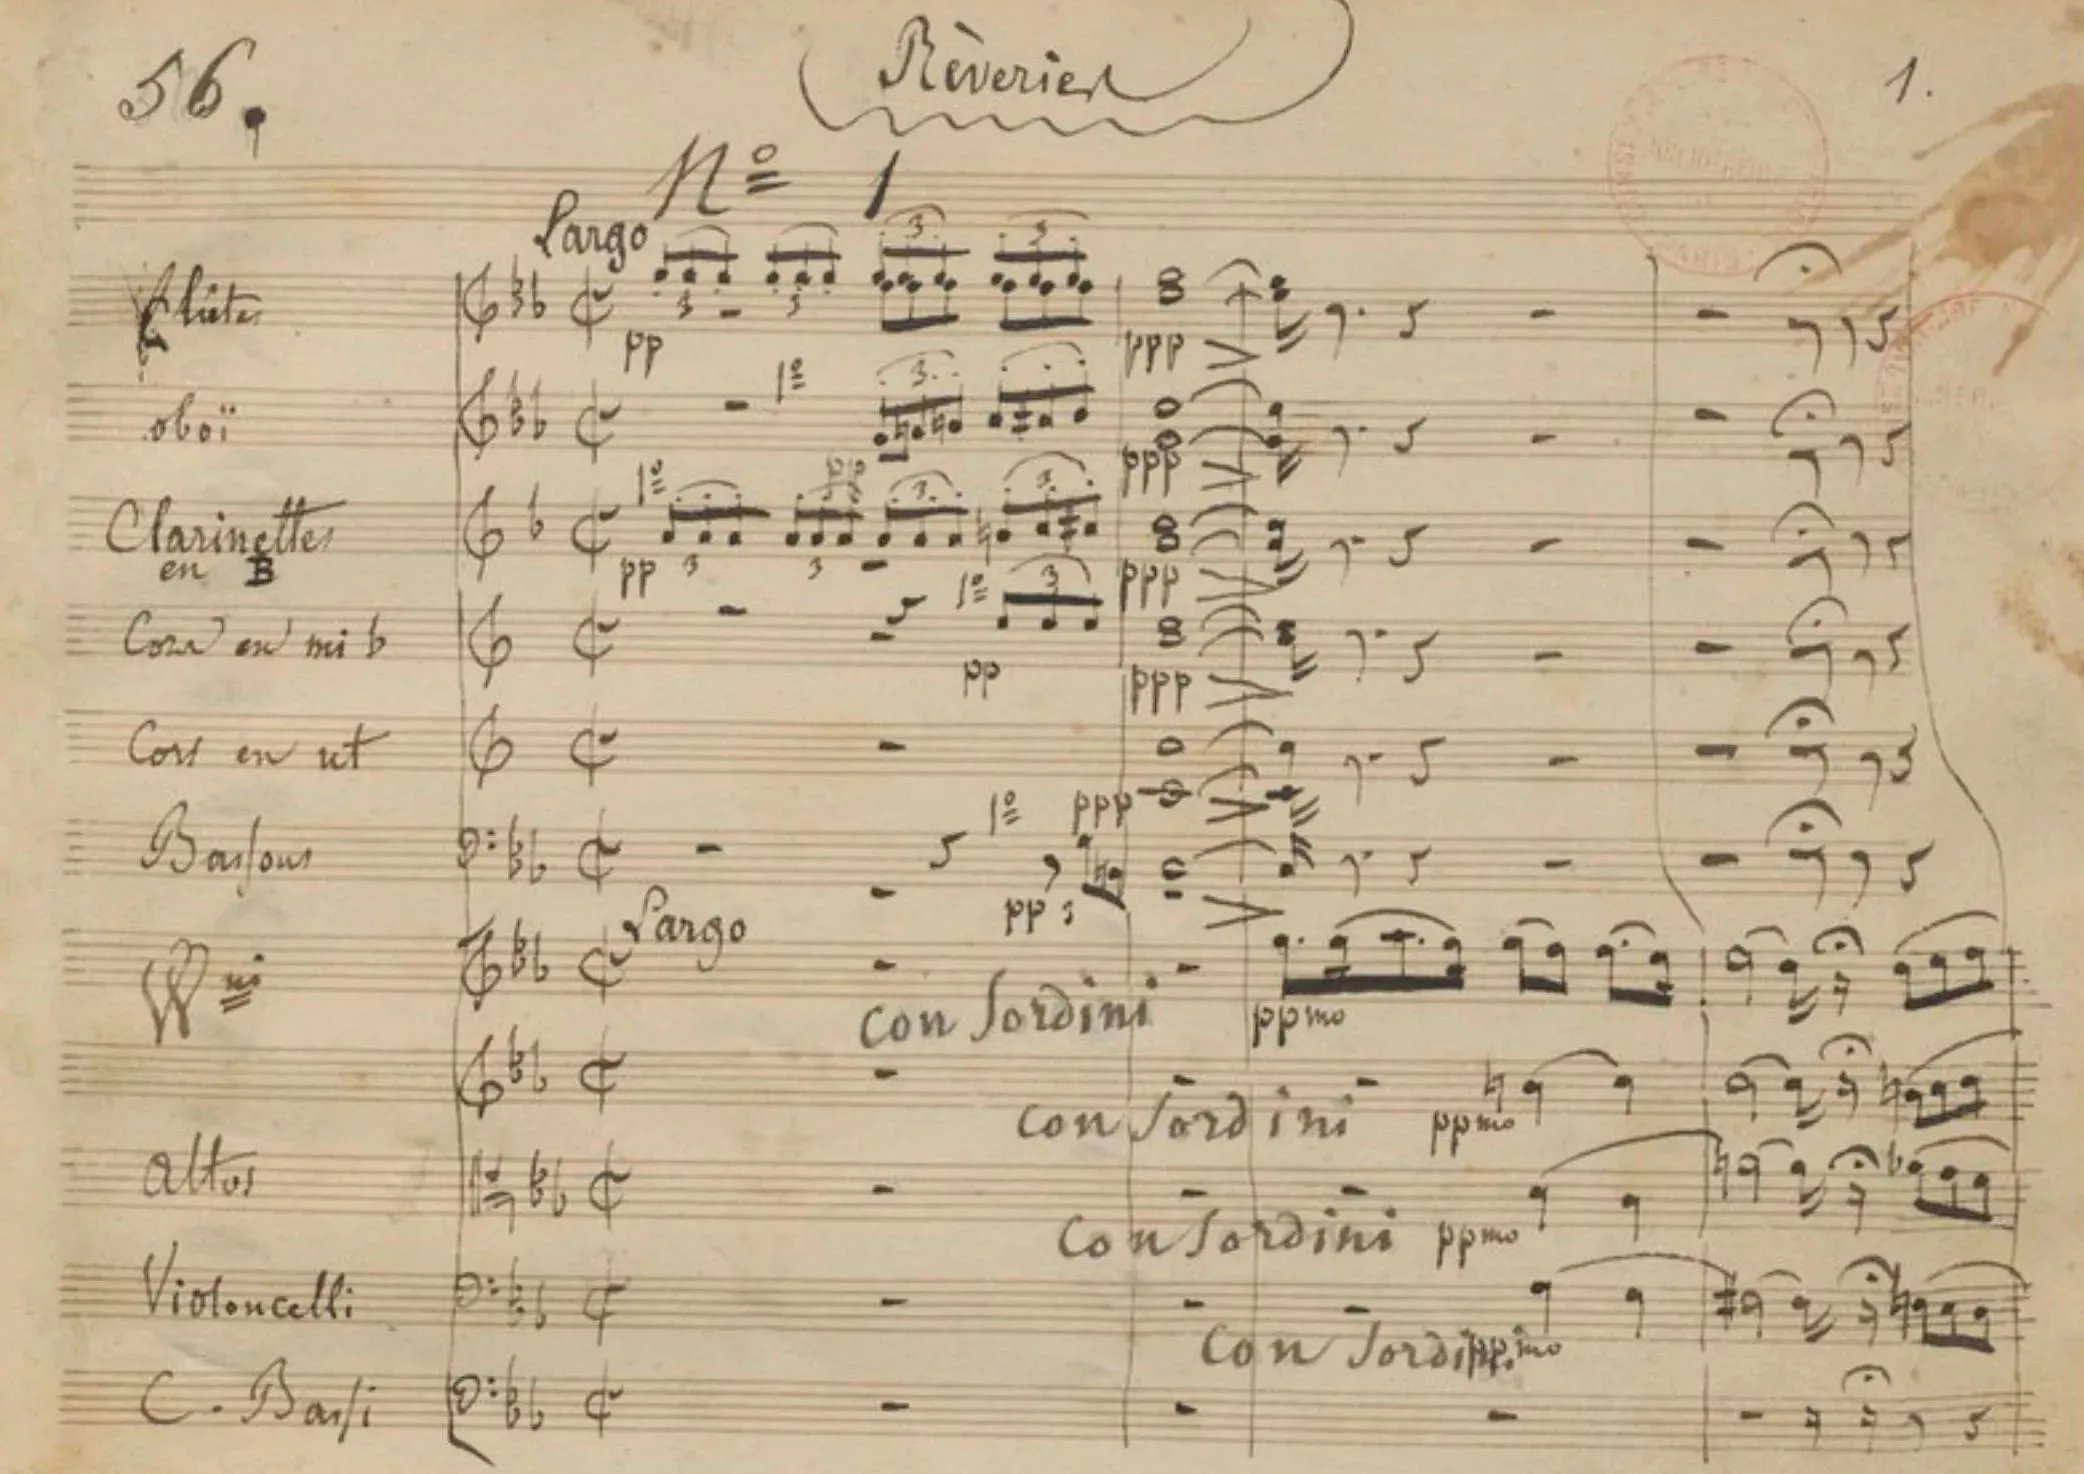 56.
Rêveries
1.
Nº 1
Largo
Flûtes
3 3 3 3
pp ppp
oboï
1º
3
pp ppp
Clarinettes
en B
1º
3 3 3 3
pp ppp
Cors en mi b
1º
3
pp ppp
Cors en ut
ppp
Bassons
1º
pp 3
Largo
Vni
con Sordini
ppmo
con Sordini
ppmo
altos
con Sordini
ppmo
Violoncelli
con Sordini
ppmo
C. Bassi